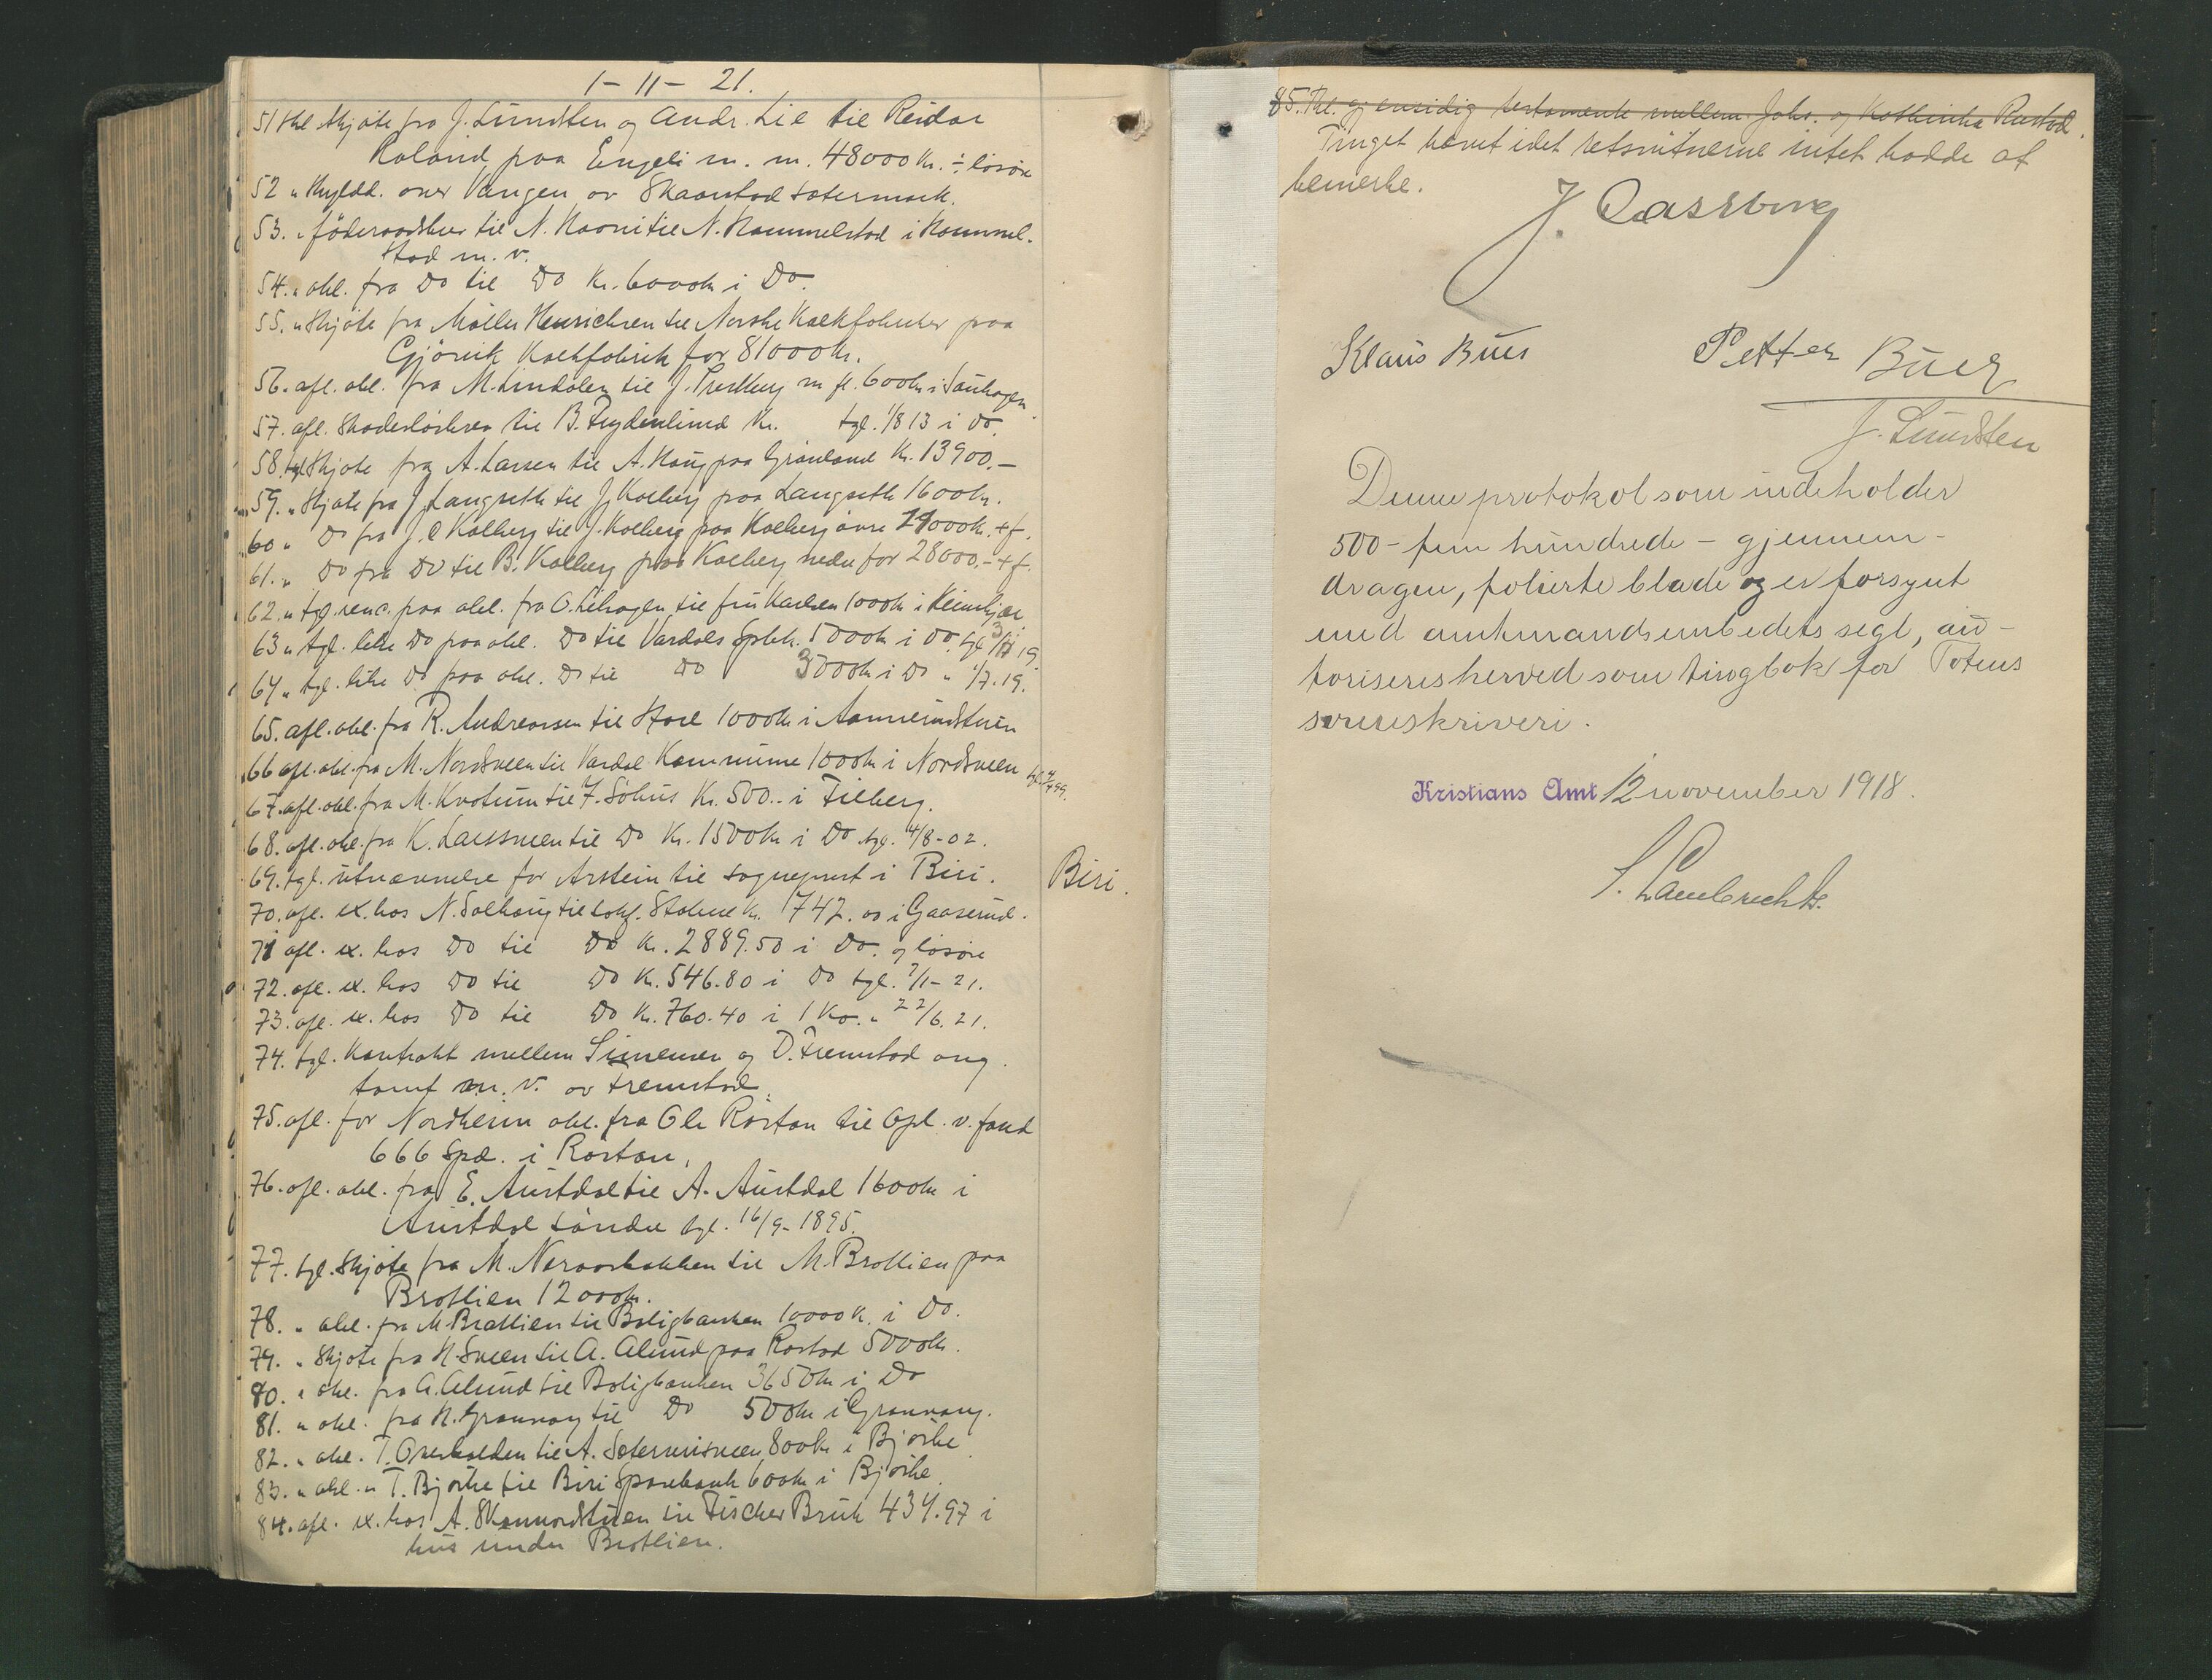 1-11-21.
51 tkl skjøte fra J. Lundsten og Andr. Lie til Reidar
Roland paa Engeli m. m. 48000 Kr. ÷ løsøre
52 " Skyldd. over Vangen av Skaarstad sætermark.
53. " föderaadsbrev til N. til N. Hammelstad i Hammel-
stad m. v.
54. " obl. fra Do til Do Kr. 6000kr i Do.
55. " Skjöte fra Möller Henrichsen til Norske Kalkfabriker paa
Gjövik Kalkfabrik for 81000kr.
56. afl. obl. fra M. Lindalen til J. m fl. 600kr i
57. afl. Skadeslösbrev til B. Frydenlund Kr. tgl. 1/8 13 i Do.
58. tgl Skjöte fra A. Larsen til A. Haug paa Grönland Kr. 13900.-
59. " Skjöte fra J. Langseth til J. Kolberg paa Langseth 1600kr.
60 " Do fra J. C Kolberg til J. Kolberg paa Kolberg övre 29000kr. + f.
61. " Do fra Do til B. Kolberg paa Kolberg nedre for 28000.- + f.
62. " tgl. renc. paa obl. fra O. Lihagen til fru Karlsen 1000kr i
63 " tgl. like Do paa obl. Do til Vardals Spbk. 5000kr i Do. tgl 19.
64 " tgl. like Do paa obl. Do til Do 3000kr i Do " 1/7. 19.
65. afl. obl. fra R. Andreassen til Stat 1000kr i
66 afl. obl. fra M. Nordsveen til Vardal Kommune 1000kr i Nordsveen tgl.
67. afl. obl. fra M. Kvatum til F. Söhus Kr. 500.- i Filberg.
68. afl. obl. fra K. Larssveen til Do Kr. 1500kr i Do tgl. 4/8-02.
69. tgl. utnævnelse for Arstein til sogneprest i Biri. Biri.
70. afl. ex. hos N. Solhaug til Kr. 742.00 i Gaaserud.
71 afl. ex. hos Do til Do Kr. 2889.50 i Do. og løsøre
72. afl. ex. hos Do til Do Kr. 546.80 i Do tgl. 7/1-21.
73. afl. ex. hos Do til Do Kr. 760.40 i 1 Ko. " 22/6. 21.
74. tgl. Kontrakt mellem Simensen og D. Fremstad ang.
tomt m. v. av Fremstad.
75. afl. for Nordheim obl. fra Ole Röstøn til Opl. v. fond
666 Spd. i Röstøn.
76. afl. obl. fra E. Austdal til A. Austdal 1600kr i
Austdal söndre tgl. 16/9-1895.
77. tgl. Skjöte fra M. Neraasbakken til M. Brotlien paa
Brotlien 12000kr.
78. " obl. fra M Brotlien til Boligbanken 10000 Kr. i Do.
79. " Skjöte fra H. Sveen til A. Alund paa Rostad 5000kr.
80. " obl. fra A. Alund til Boligbanken 3650kr i Do
81. " obl. fra H. Granvang til Do 500kr i Granvang.
82. " obl. T. til A. 800kr i Björke
83. " obl. " T. Björke til Biri Sparebank 600kr i Björke
84. afl. ex. hos A. Skonnordstuen til Fischer Bruk 434.97 i
hus under Brotlien.
85. tkl. gjensidig testamente mellem Johs. og Kathinka Rustad.
Tinget hævet idet retsvitnerne intet hadde at
bemerke.
J. Qassberg
Klaus Bues
Petter Buer
J. Lundsten
Denne protokol som indeholder
500 - fem hundrede - gjennem-
dragne, folierte blade og er forsynt
med amtmandsembedets segl, au-
toriseres herved som tingbok for Totens
sorenskriveri.
Kristians Amt 12 november 1918.
S. Lambrechts.